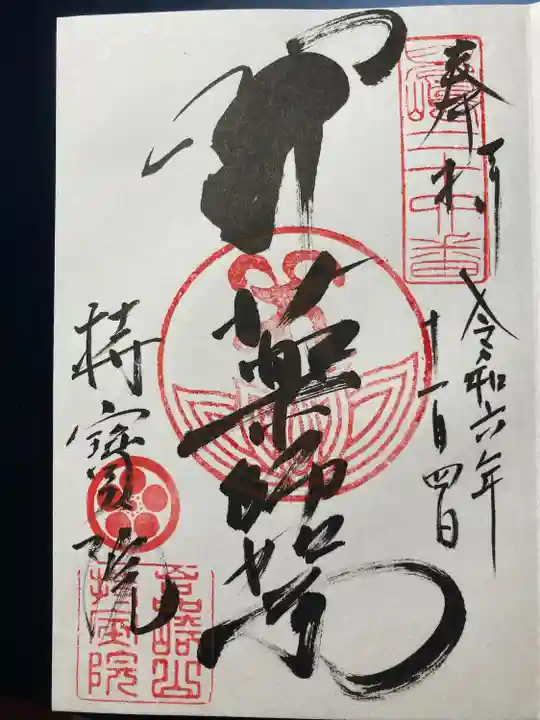 奉拝
令和六年
十一月四日
薬師如来
持寳院
持宝院